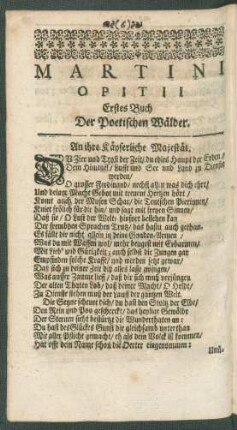 (6)
MARTINI
OPITII
Erstes Buch
Der Poetischen Wälder.
An ihre Käyserliche Majestät.
DU Zier und Trost der Zeit/ du edles Haupt der Erden/
Dem Himmel/ Lufft und See und Land zu Dienste
werden/
O grosser Ferdinand/ nechst was dich ehrt/
Und deine Macht Gebot mit treuem Hertzen hört/
Komt auch der Musen Schaar/ die Teutschen Pierinnen/
Kniet frölich für dir hin/ und sagt mit treuen Sinnen/
Daß sie/ O Lust der Welt/ hinfort bestehen kan
Der frembden Sprachen Trutz/ das hastu auch gethan.
Es fällt dir nicht allein zu deine Gnaden-Lernen/
Was du mit Waffen wol/ mehr beugest mit Erbarmen/
Mit Fried' und Gütigkeit; auch selbst die Jungen gar
Empfinden solche Krafft/ und werden jetzt gewar/
Daß sich zu deiner Zeit diß alles lasse zwingen/
Was ausser Zwange lebt/ daß die sich muß verjüngen
Der alten Thaten Lob/ daß deiner Macht/ O Held/
Zu Dienste stehen muß der Lauff der gantzen Welt.
Die Seyne scheuet dich/ du hast den Stoltz der Elbe/
Den Rein und Pou geschreckt/ das
Der Sternen sieht bestürtzt die Wunderthaten an:
Du hast des Glückes Gunst dir gleichsam unterthan
Mit aller Pflicht gemacht/ eh als dein Volck ist kommen/
Hat offt dein Name schon die Oerter eingenommen:
Und